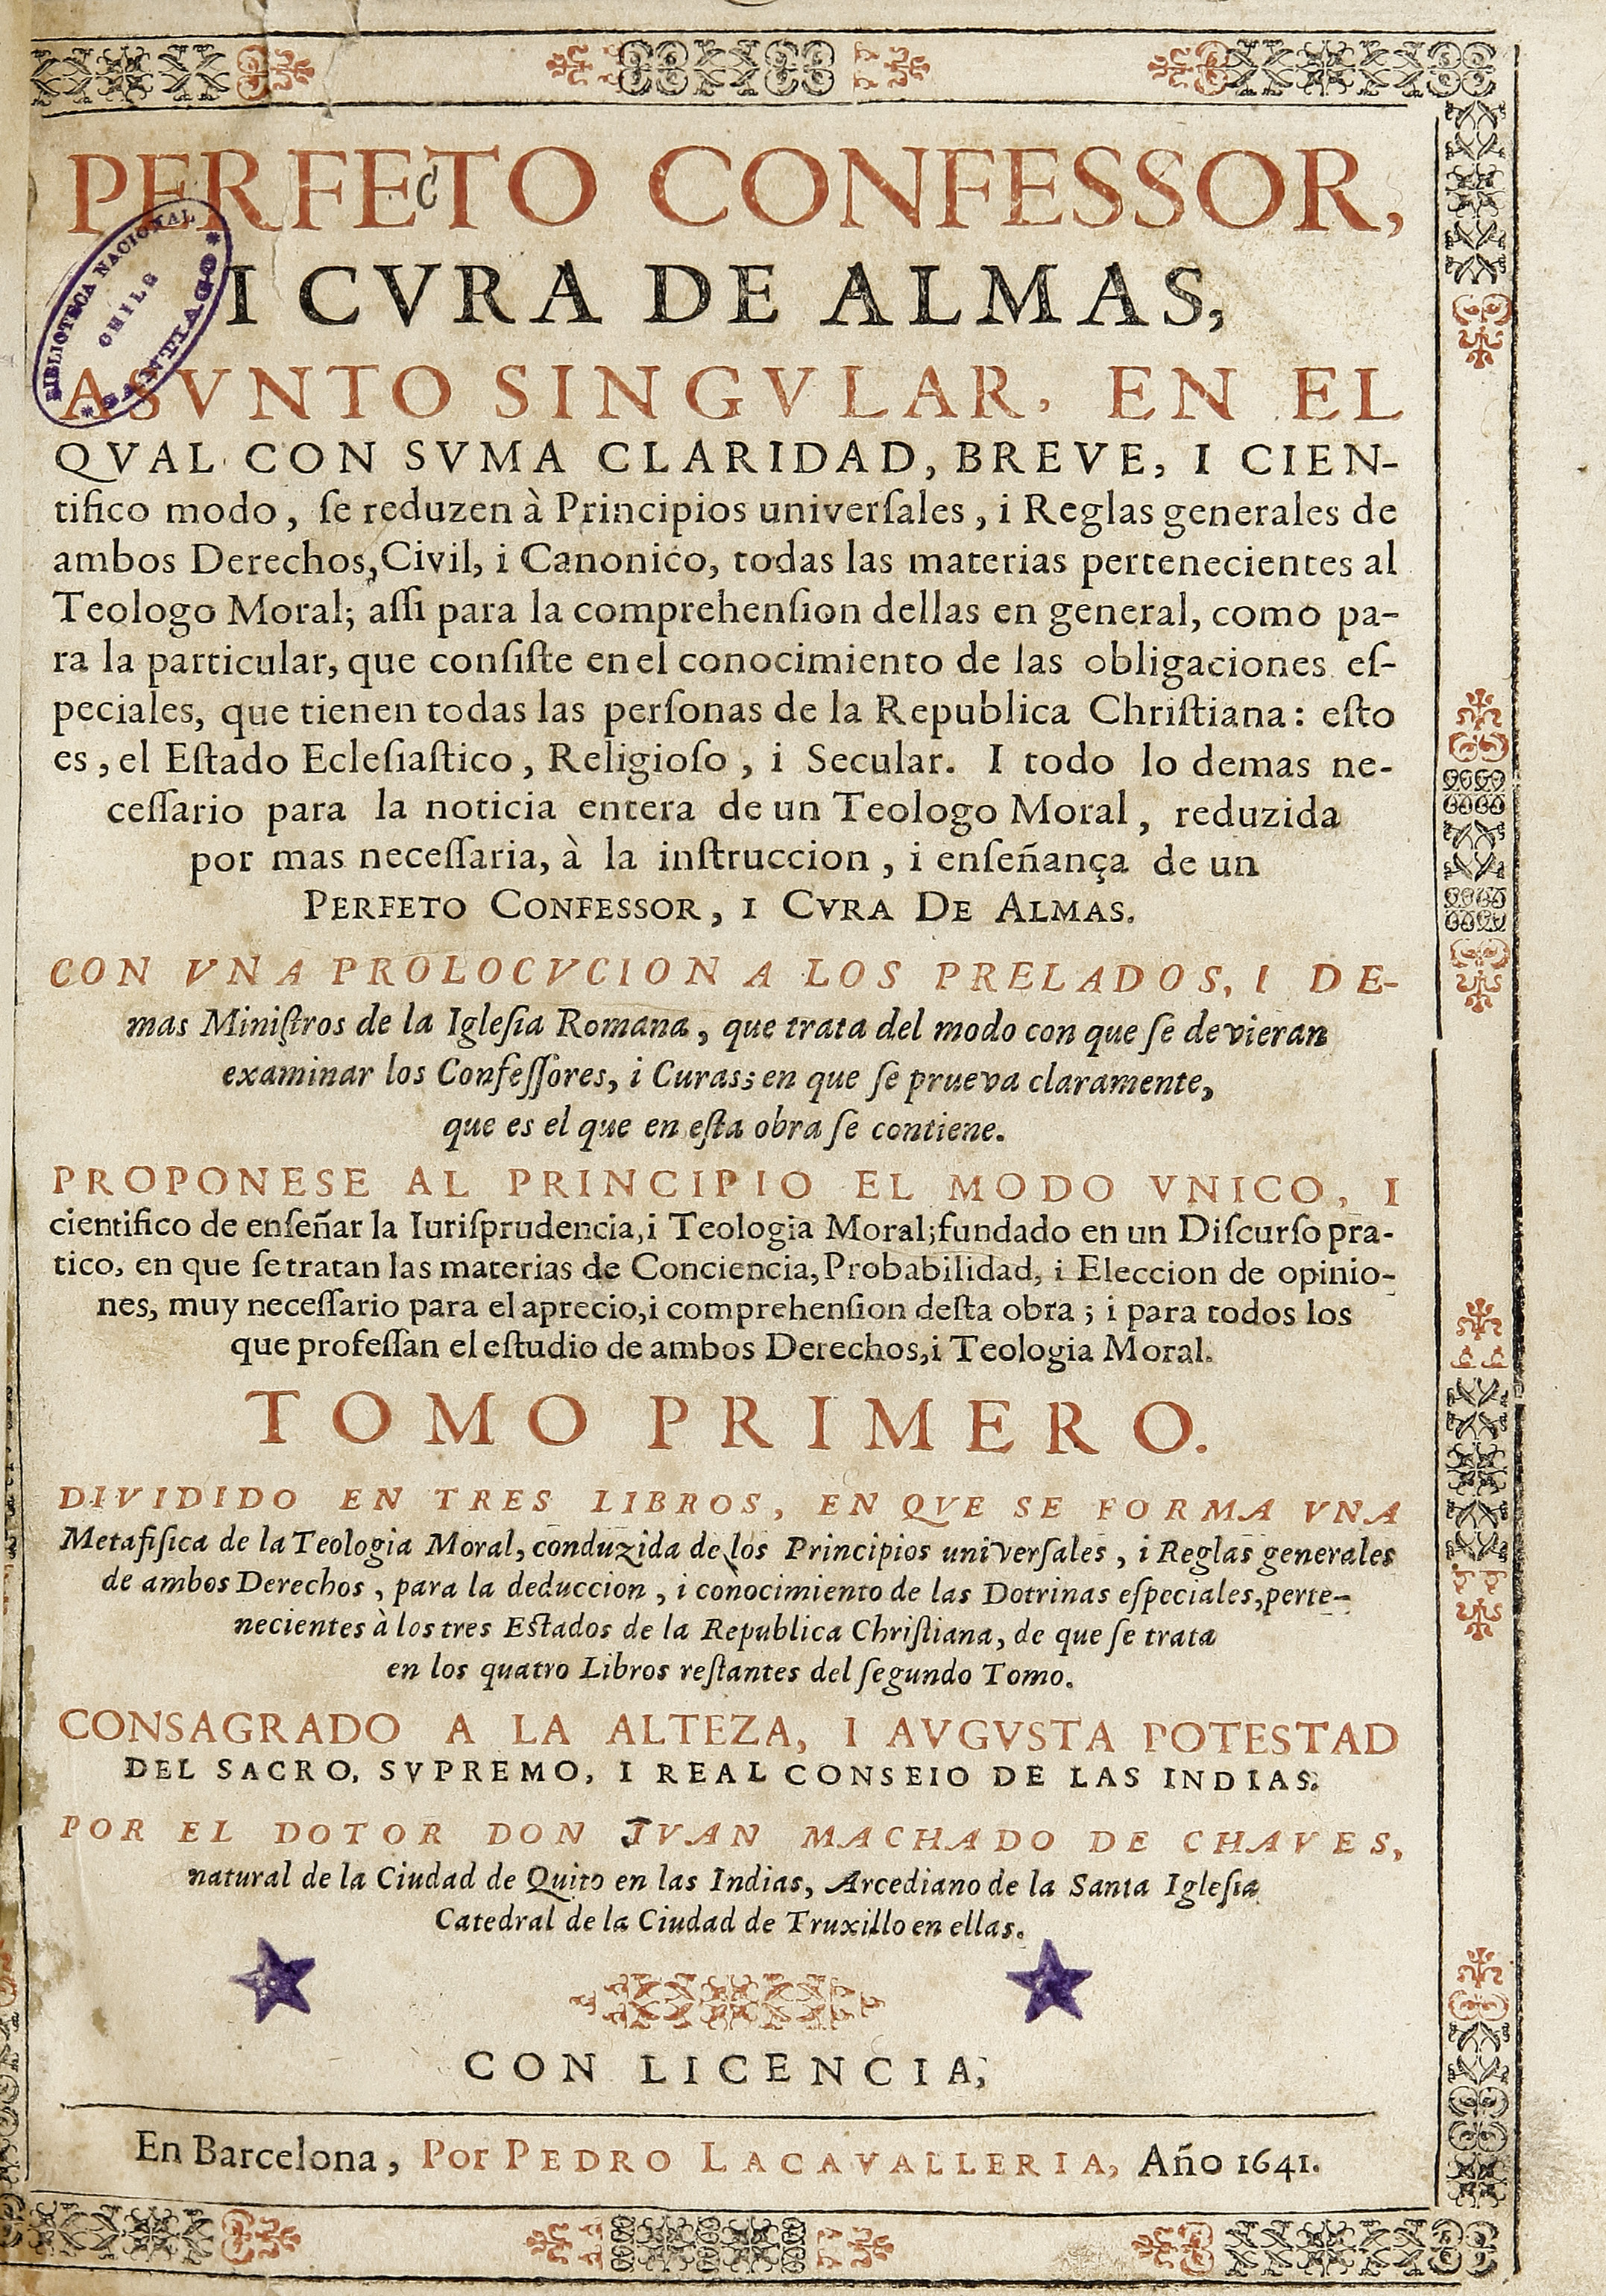 PERFETO CONFESSOR,
I CVRA DE ALMAS,
ASVNTO SINGVLAR, EN EL
QVAL CON SVMA CLARIDAD, BREVE, I CIEN-
tifico modo, ſe reduzen à Principios univerſales, i Reglas generales de
ambos Derechos, Civil, i Canonico, todas las materias pertenecientes al
Teologo Moral; aſſi para la comprehenſion dellas en general, como pa-
ra la particular, que conſiſte en el conocimiento de las obligaciones eſ-
peciales, que tienen todas las perſonas de la Republica Chriſtiana: eſto
es, el Eſtado Ecleſiaſtico, Religioſo, i Secular. I todo lo demas ne-
ceſſario para la noticia entera de un Teologo Moral, reduzida
por mas neceſſaria, à la inſtruccion, i enſeñança de un
PERFETO CONFESSOR, I CVRA DE ALMAS.
CON VNA PROLOCVCION A LOS PRELADOS, I DE-
mas Miniſtros de la Igleſia Romana, que trata del modo con que ſe devieran
examinar los Confeſſores, i Curas; en que ſe prueva claramente,
que es el que en eſta obra ſe contiene.
PROPONESE AL PRINCIPIO EL MODO VNICO, I
cientifico de enſeñar la Iuriſprudencia, i Teologia Moral; fundado en un Diſcurſo pra-
tico, en que ſe tratan las materias de Conciencia, Probabilidad, i Eleccion de opinio-
nes, muy neceſſario para el aprecio, i comprehenſion deſta obra; i para todos los
que profeſſan el eſtudio de ambos Derechos, i Teologia Moral.
TOMO PRIMERO.
DIVIDIDO EN TRES LIBROS, EN QVE SE FORMA VNA
Metafiſica de la Teologia Moral, conduzida de los Principios univerſales, i Reglas generales
de ambos Derechos, para la deduccion, i conocimiento de las Dotrinas eſpeciales, perte-
necientes à los tres Eſtados de la Republica Chriſtiana, de que ſe trata
en los quatro Libros reſtantes del ſegundo Tomo.
CONSAGRADO A LA ALTEZA, I AVGVSTA POTESTAD
DEL SACRO, SVPREMO, I REAL CONSEIO DE LAS INDIAS.
POR EL DOTOR DON JVAN MACHADO DE CHAVES,
natural de la Ciudad de Quito en las Indias, Arcediano de la Santa Igleſia
Catedral de la Ciudad de Truxillo en ellas.
CON LICENCIA,
En Barcelona, Por PEDRO LACAVALLERIA, Año 1641.
BIBLIOTECA NACIONAL
CHILE
* SANTIAGO *